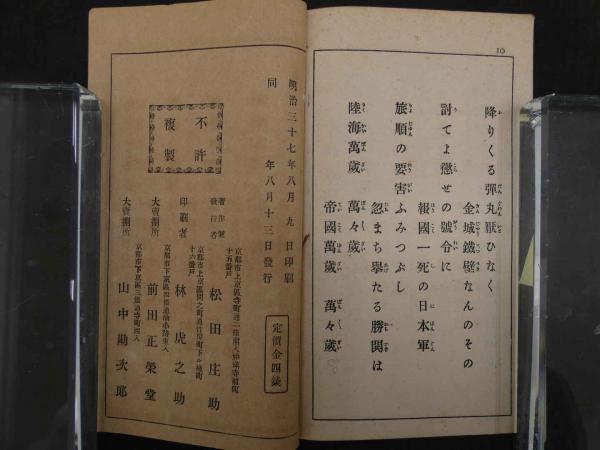 10
降りくる彈丸厭ひなく
金城鐵壁なんのその
討てよ懲せの號令に
報國一死の日本軍
旅順の要害ふみつぶし
忽まち擧たる勝鬨は
陸海萬歲 萬々歲
帝國萬歲 萬々歲
明治三十七年八月九日印刷
同 年八月十三日發行
定價金四錢
不許
複製
著作兼
發行者
松田庄助
京都市上京區
印刷者
林虎之助
十六番戶
大賣捌所
前田正榮堂
京都市下京區
大賣捌所
山中勘次郎
京都市下京區三條通寺町西入